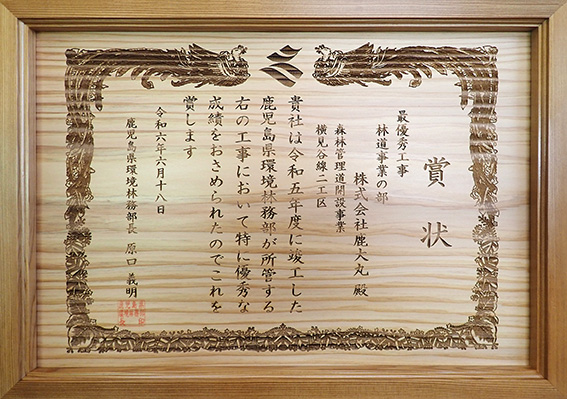 賞状
最優秀工事
林道事業の部
株式会社鹿大丸 殿
森林管理道開設事業
横見谷線二工区
貴社は令和五年度に竣工した
鹿児島県環境林務部が所管する
右の工事において特に優秀な
成績をおさめられたのでこれを
賞します
令和六年六月十八日
鹿児島県環境林務部長 原口義明